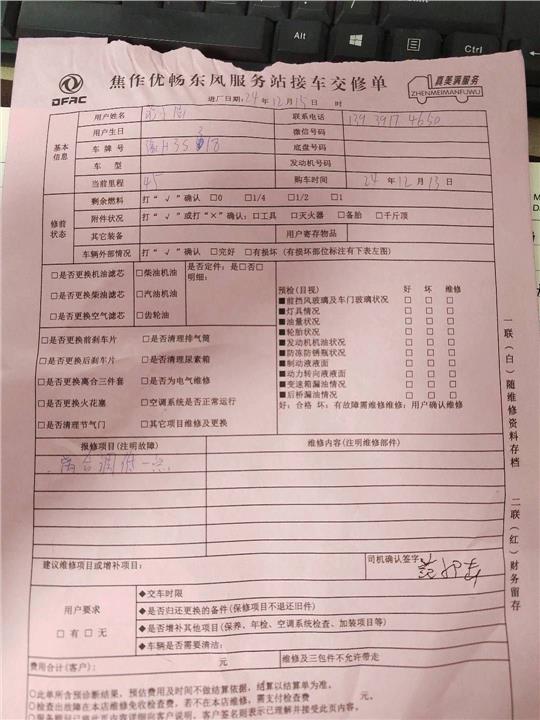 Alt
Ctrl
DFAC
焦作优畅东风服务站接车交修单
真美满服务
ZHENMEIMANFUWU
进厂日期: 24 年 12 月 15 日 时
基本信息
用户姓名
联系电话 139 3917 4650
用户生日
微信号码
车牌号
底盘号码
车型
发动机号码
当前里程 45
购车时间 24 年 12 月 13 日
修前状态
剩余燃料 打“√”确认 □0 □1/4 □1/2 □1
附件状况 打“√”或打“×”确认: □工具 □灭火器 □备胎 □千斤顶
其它装备
用户寄存物品
车辆外部情况 打“√”确认 □完好 □有损坏 (有损坏部位标注有下表左图)
□是否更换机油滤芯 □柴油机油
□是否更换柴油滤芯 □汽油机油
□是否更换空气滤芯 □齿轮油
是否定件: 是□否□
明细:
□是否更换前刹车片 □是否清理排气筒
□是否更换后刹车片 □是否清理尿素箱
□是否更换离合三件套 □是否为电气维修
□是否更换火花塞 □空调系统是否正常运行
□是否清理节气门 □其它项目维修及更换
预检(目视) 好 坏 维修
■前挡风玻璃及车门玻璃状况 □ □ □
■灯具情况 □ □ □
■油量状况 □ □ □
■轮胎状况 □ □ □
■发动机机油状况 □ □ □
■防冻防锈瓶状况 □ □ □
■制动液液面 □ □ □
■动力转向液液面 □ □ □
■变速箱漏油情况 □ □ □
■后桥漏油情况 □ □ □
好: 合格 坏: 有故障需维修维修: 用户确认维修
报修项目(注明故障)
维修内容(注明维修部件)
离合调低一点
建议维修项目或增补项目:
司机确认签字:
用户要求
□有 □无
◆交车时限
◆是否归还更换的备件(保修项目不退还旧件)
◆是否增补其他项目(保养、年检、空调系统检查、加装项目等)
◆车辆是否需要清洁:
费用合计(客户): 元
维修及三包件不允许带走
○此单所含预诊断结果，预估费用及时间不做结算依据，结算以结算单为准。
○检查出故障在本店维修免收检查费，若不在本店维修，需支付检查费 元。
一联(白)随维修资料存档
二联(红)财务留存